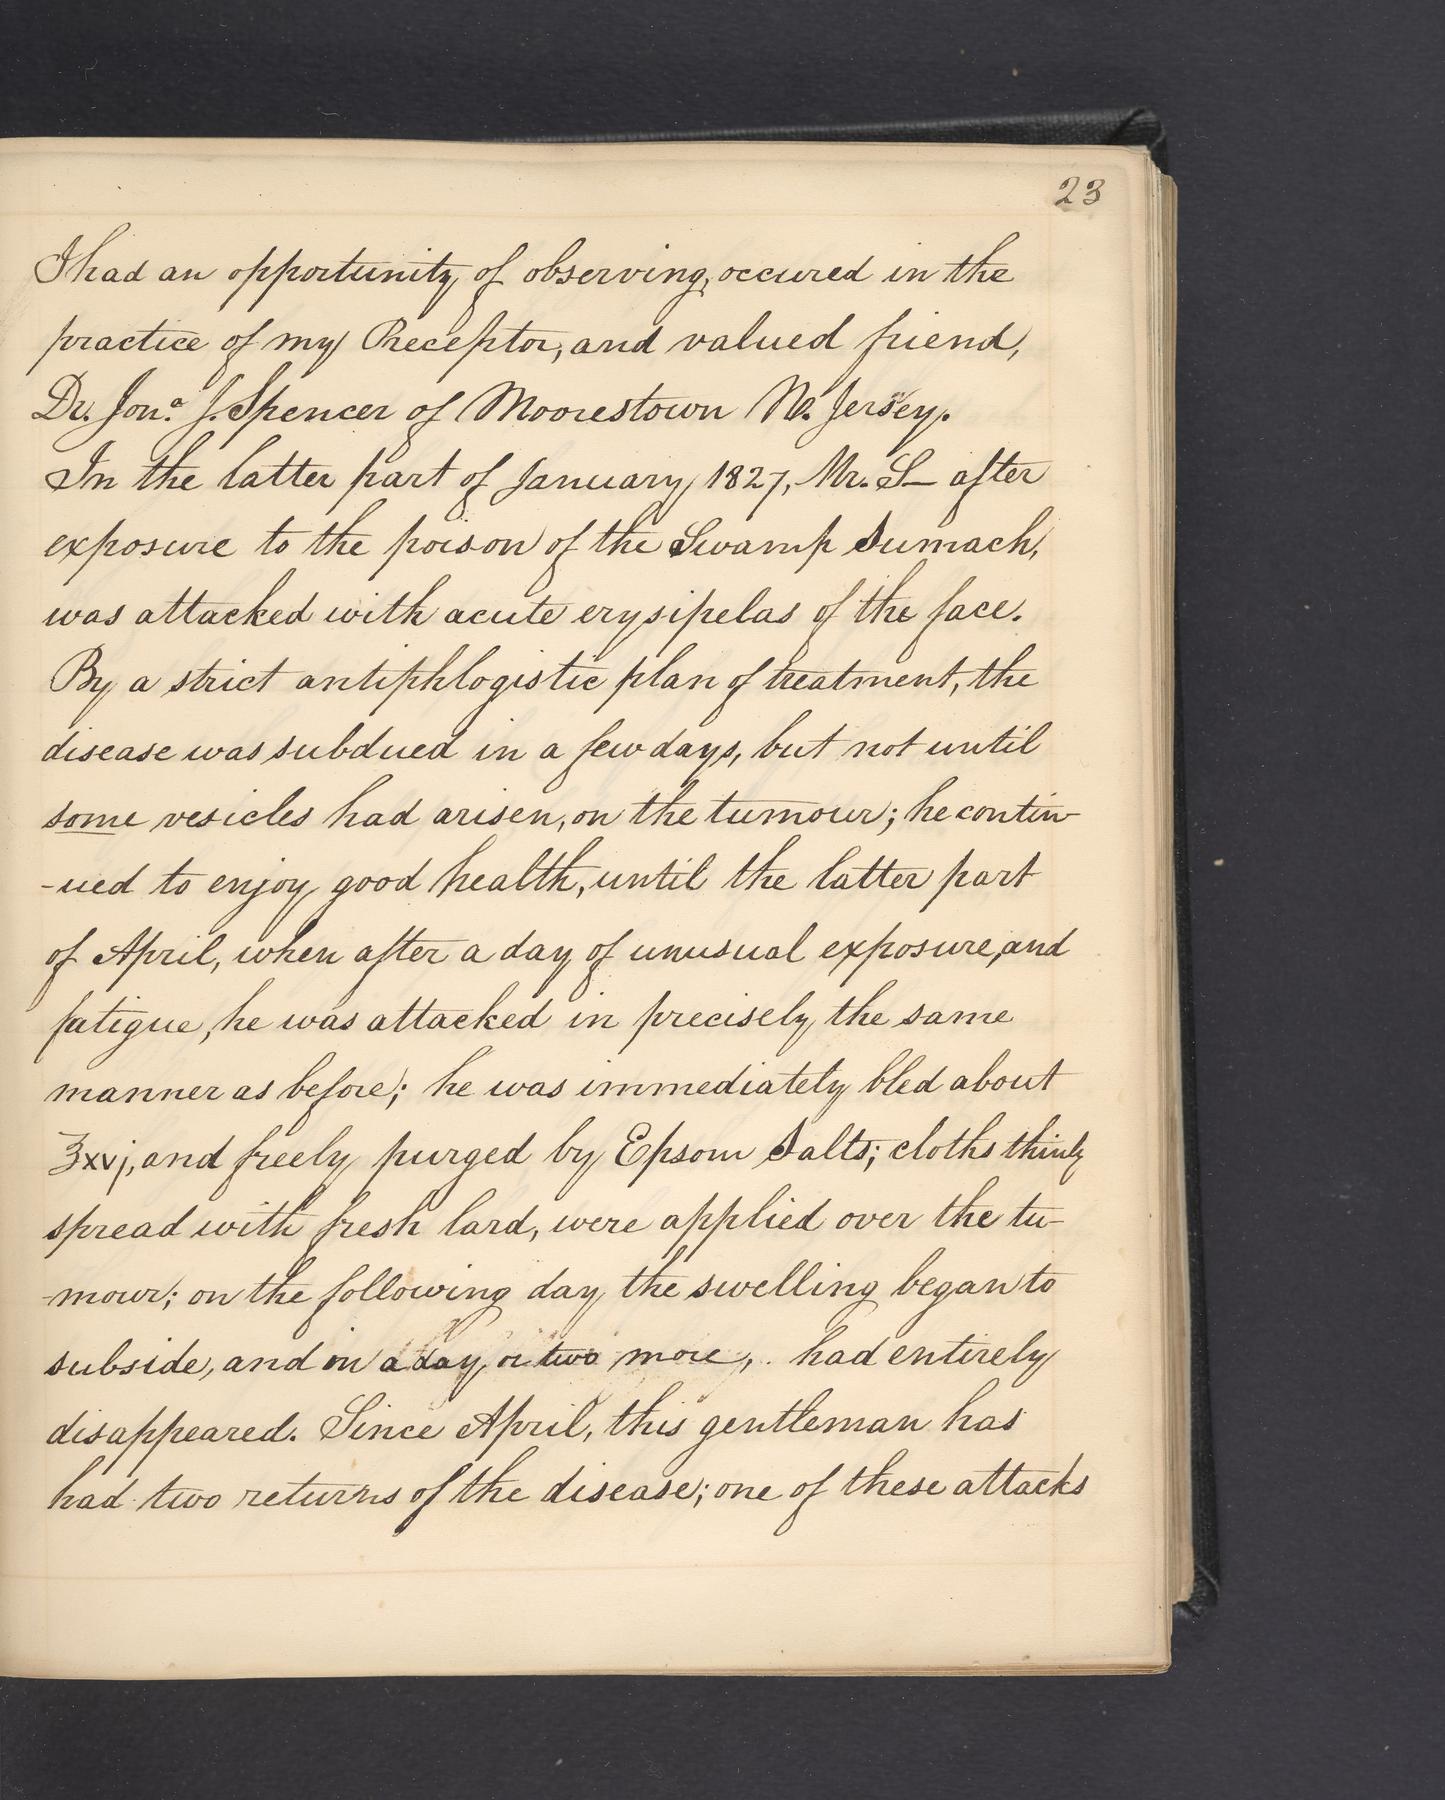 23
I had an opportunity of observing, occured in the
practice of my Preceptor, and valued friend,
Dr. Jonª J. Spencer of Moorestown N. Jersey.
In the latter part of January 1827, Mr. S— after
exposure to the poison of the Swamp Sumach,
was attacked with acute erysipelas of the face.
By a strict antiphlogistic plan of treatment, the
disease was subdued in a few days, but not until
some vesicles had arisen, on the tumour; he contin-
-ued to enjoy good health, until the latter part
of April, when after a day of unusual exposure, and
fatigue, he was attacked in precisely the same
manner as before; he was immediately bled about
℥xvj, and freely purged by Epsom Salts; cloths thinly
spread with fresh lard, were applied over the tu-
-mour; on the following day the swelling began to
subside, and in a day or two more, had entirely
disappeared. Since April, this gentleman has
had two returns of the disease; one of these attacks